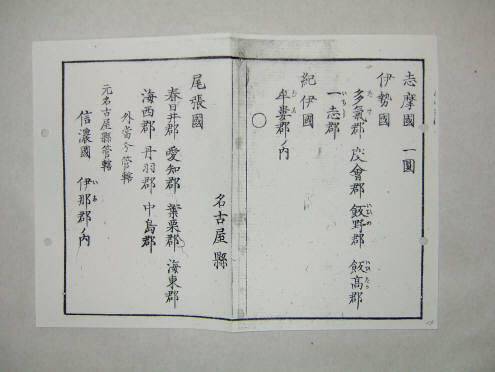 志摩國 一圓
伊勢國
多氣郡 度會郡 飯野郡 飯高郡
一志郡
紀伊國
牟婁郡ノ内
○
名古屋縣
尾張國
春日井郡 愛知郡 葉栗郡 海東郡
海西郡 丹羽郡 中島郡
外當分管轄
元名古屋縣管轄
信濃國 伊那郡ノ内